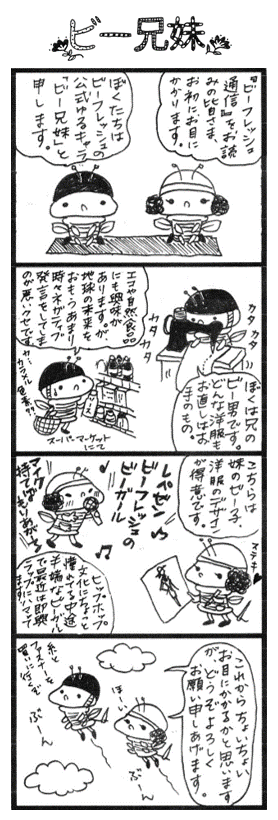 ビー兄妹
『ビーフレッシュ
通信』をお読
みの皆さま、
お初にお目に
かかります。
ぼくたちは
ビーフレッシュの
公式ゆるキャラ
「ビー兄妹」と
申します。
カタカタ
カタカタ
ぼくは兄の
ビー男です。
どんな洋服も
お直しはお
まのもの。
エコや自然食品
にも興味が
ありますが、
地球の未来を
おもうあまり
時々ネガティブ
発言をしてしまう
のが悪いクセです
スーパーマーケット
にて
こちらは
妹のビー子。
洋服のデザイン
が得意です。
ステキ
レペゼン
ビーフレッシュの
ビーガール
マイク
持てばもりあがる
ヒップホップ
文化にもちょっと
憧れる中途
半端なビーガール
で最近は即興
ラップにハマって
ます
これからちょいちょい
お目にかかるかと思います
が、どうぞよろしく
お願い申しあげます。
ほーい
ぶーん
ぶーん
糸と
ファスナーを
買いに行くぞ